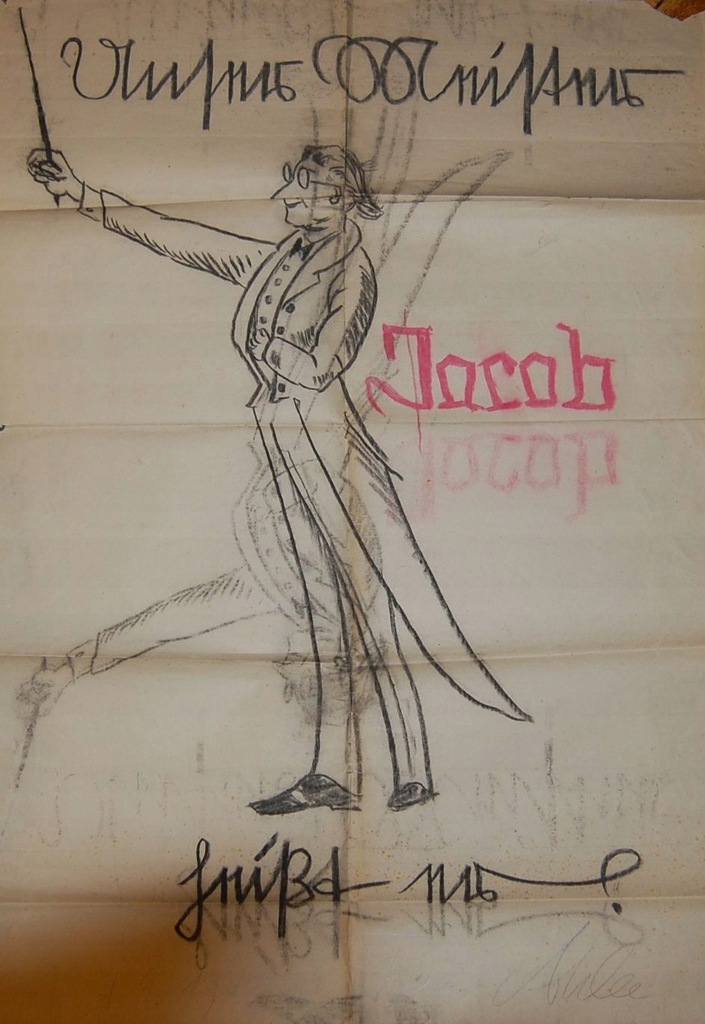 Unser Meister
Jacob
heißt er?